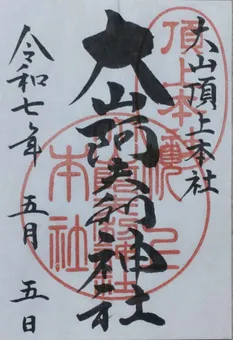 大山頂上本社
大山阿夫利神社
令和七年 五月 五日
頂上本社